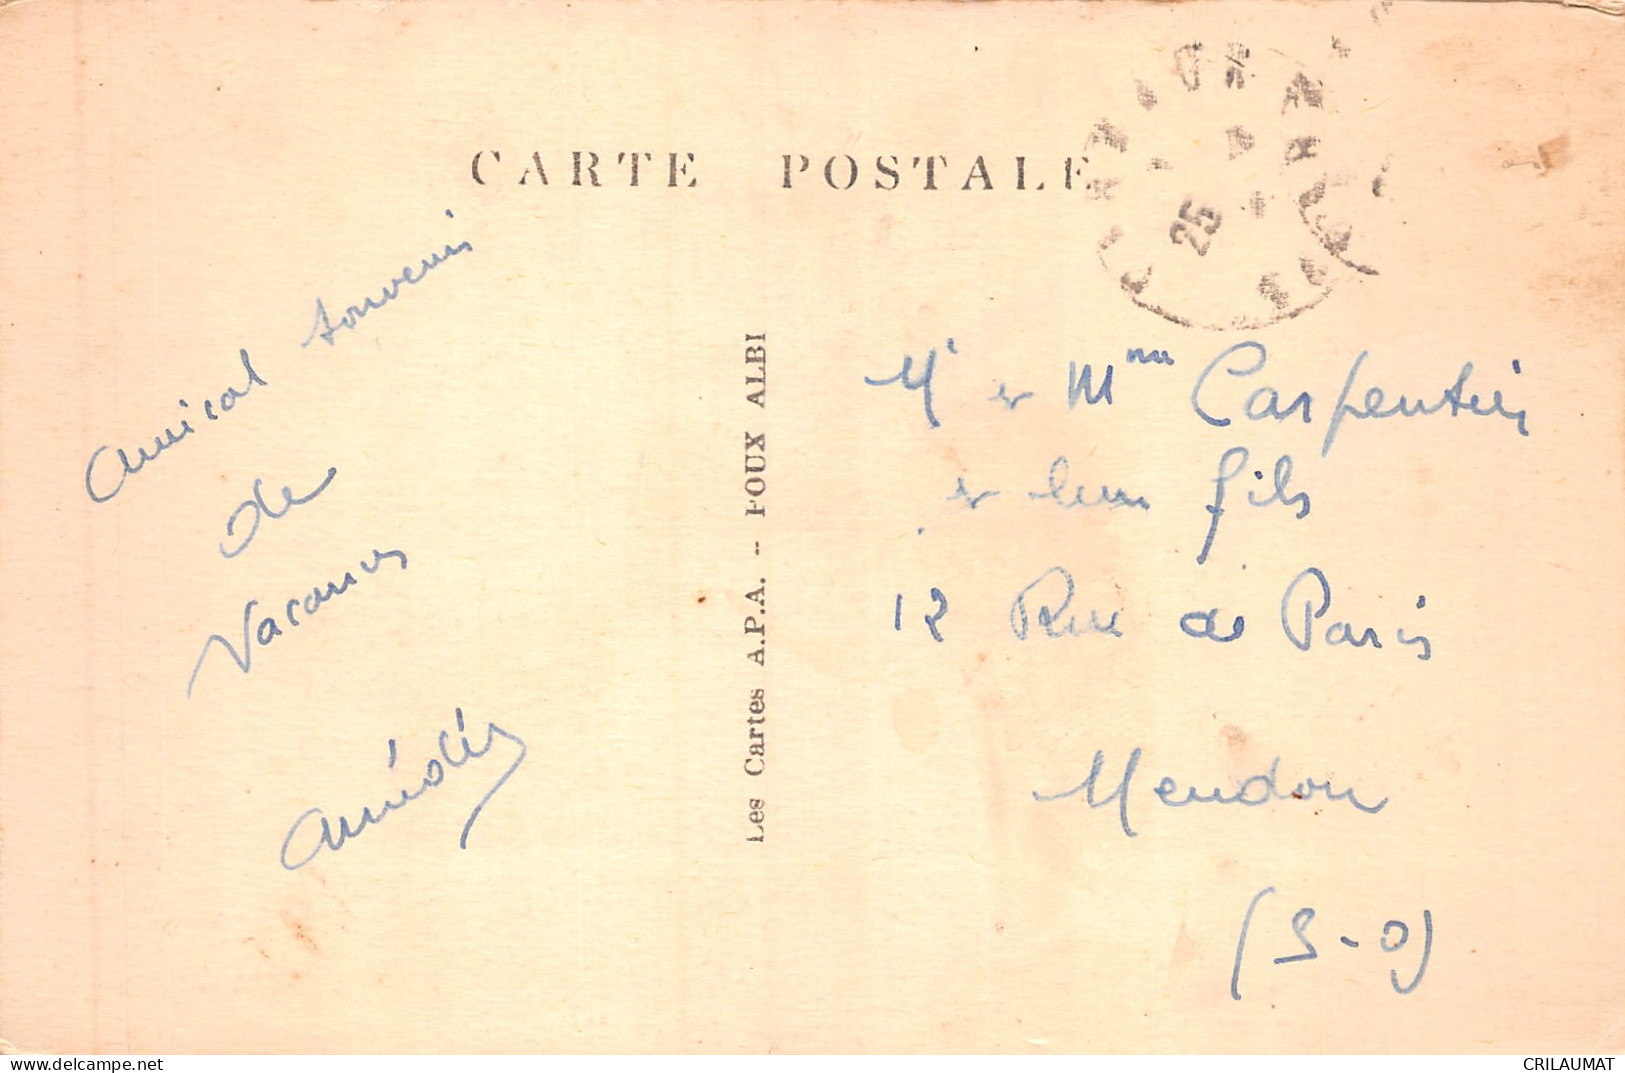 CARTE POSTALE
25
amical souvenir
de
Vacances
Amédée
Les Cartes A.P.A. -- POUX ALBI
Mr et Mme Carpentier
et leur fils
12 Rue de Paris
Meudon
(S-O)
delcampe.net
CRILAUMAT